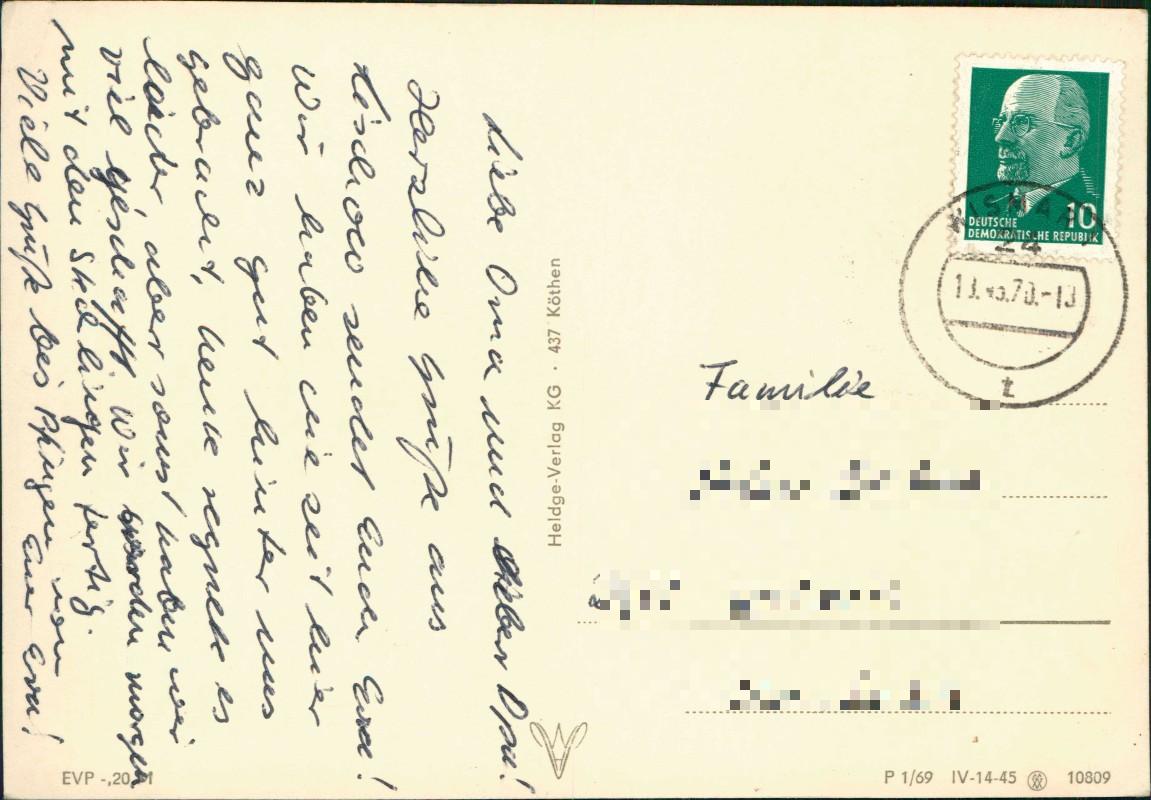 Liebe Oma und lieber Opa!
Herzliche Grüße aus
sendet Euch Eva!
Wir haben die Zeit hier
ganz gut hinter uns
gebracht, heute regnete es
leider, aber sonst haben wir
viel geschafft. Wir werden morgen
mit den fertig.
Viele Grüße bis Pfingsten von
Eurer Eva!
Heldge-Verlag KG · 437 Köthen
10
DEUTSCHE
DEMOKRATISCHE REPUBLIK
WISMAR
24
-13
t
Familie
EVP -,20 M
P 1/69 IV-14-45 10809